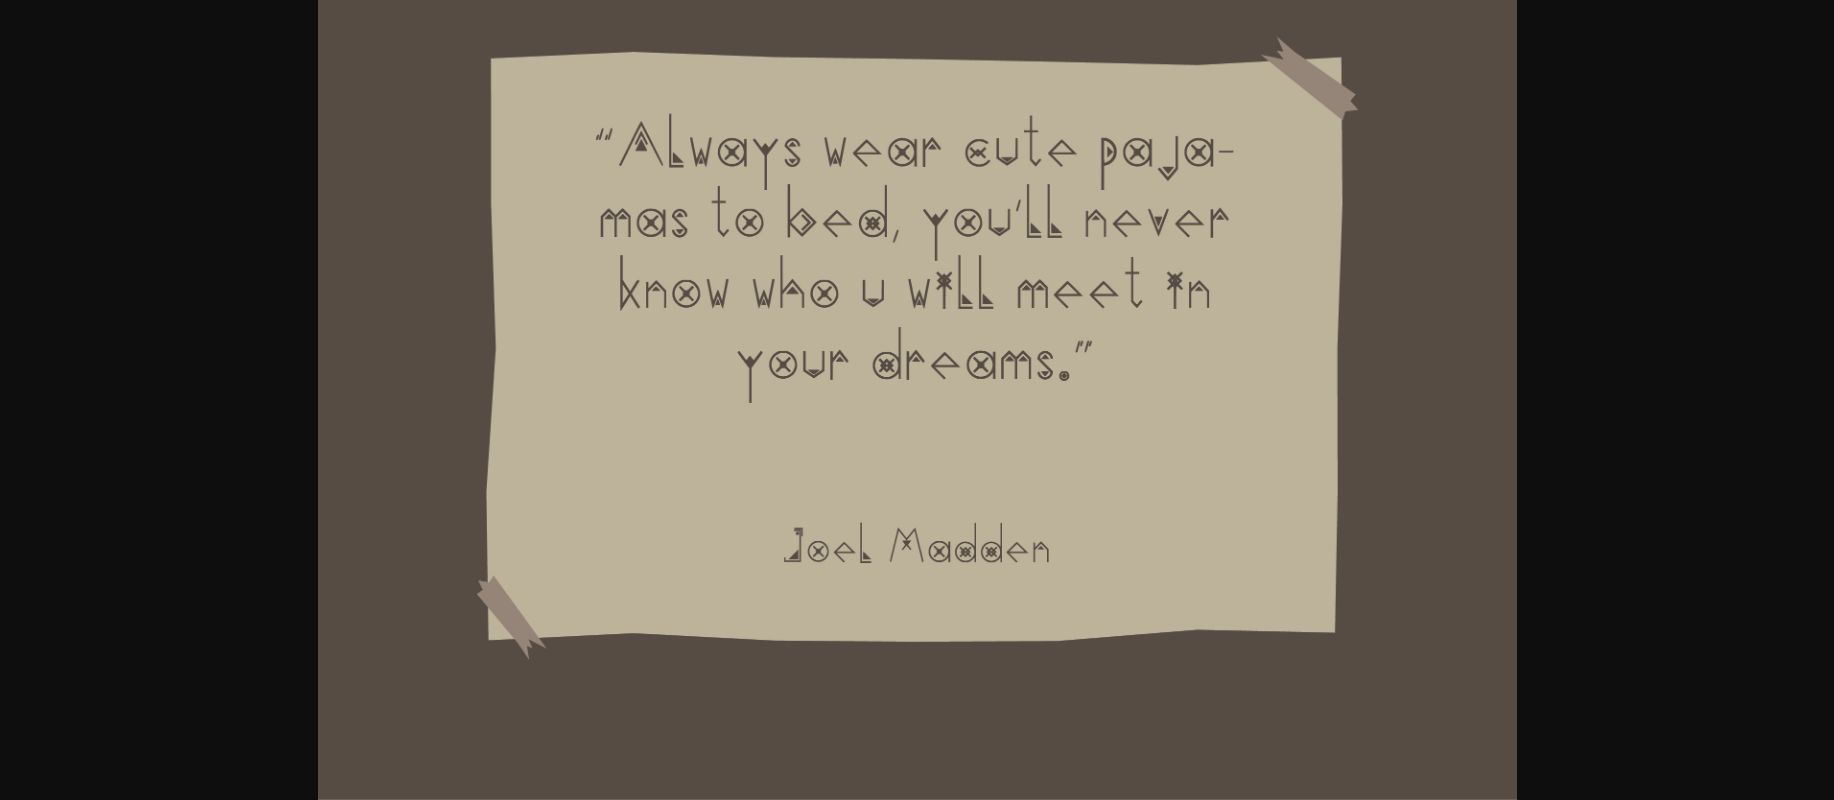 “Always wear cute paja-
mas to bed, you'll never
know who u will meet in
your dreams.”
Joel Madden